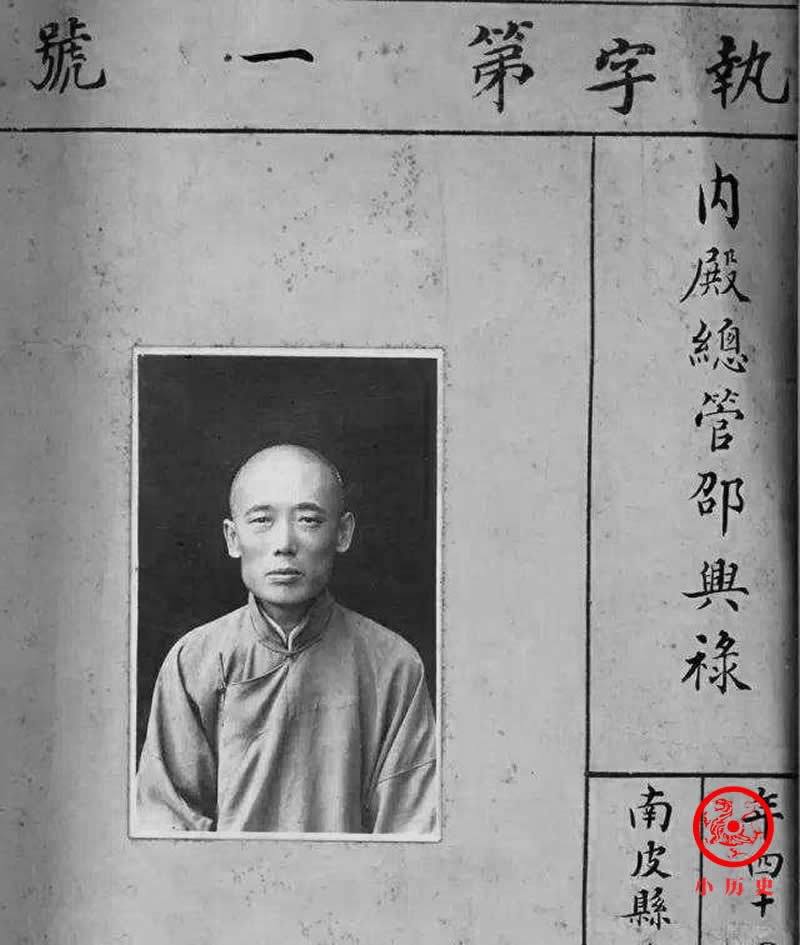 執字第一號
内殿總管邵興祿
年四十
南皮縣
小历史